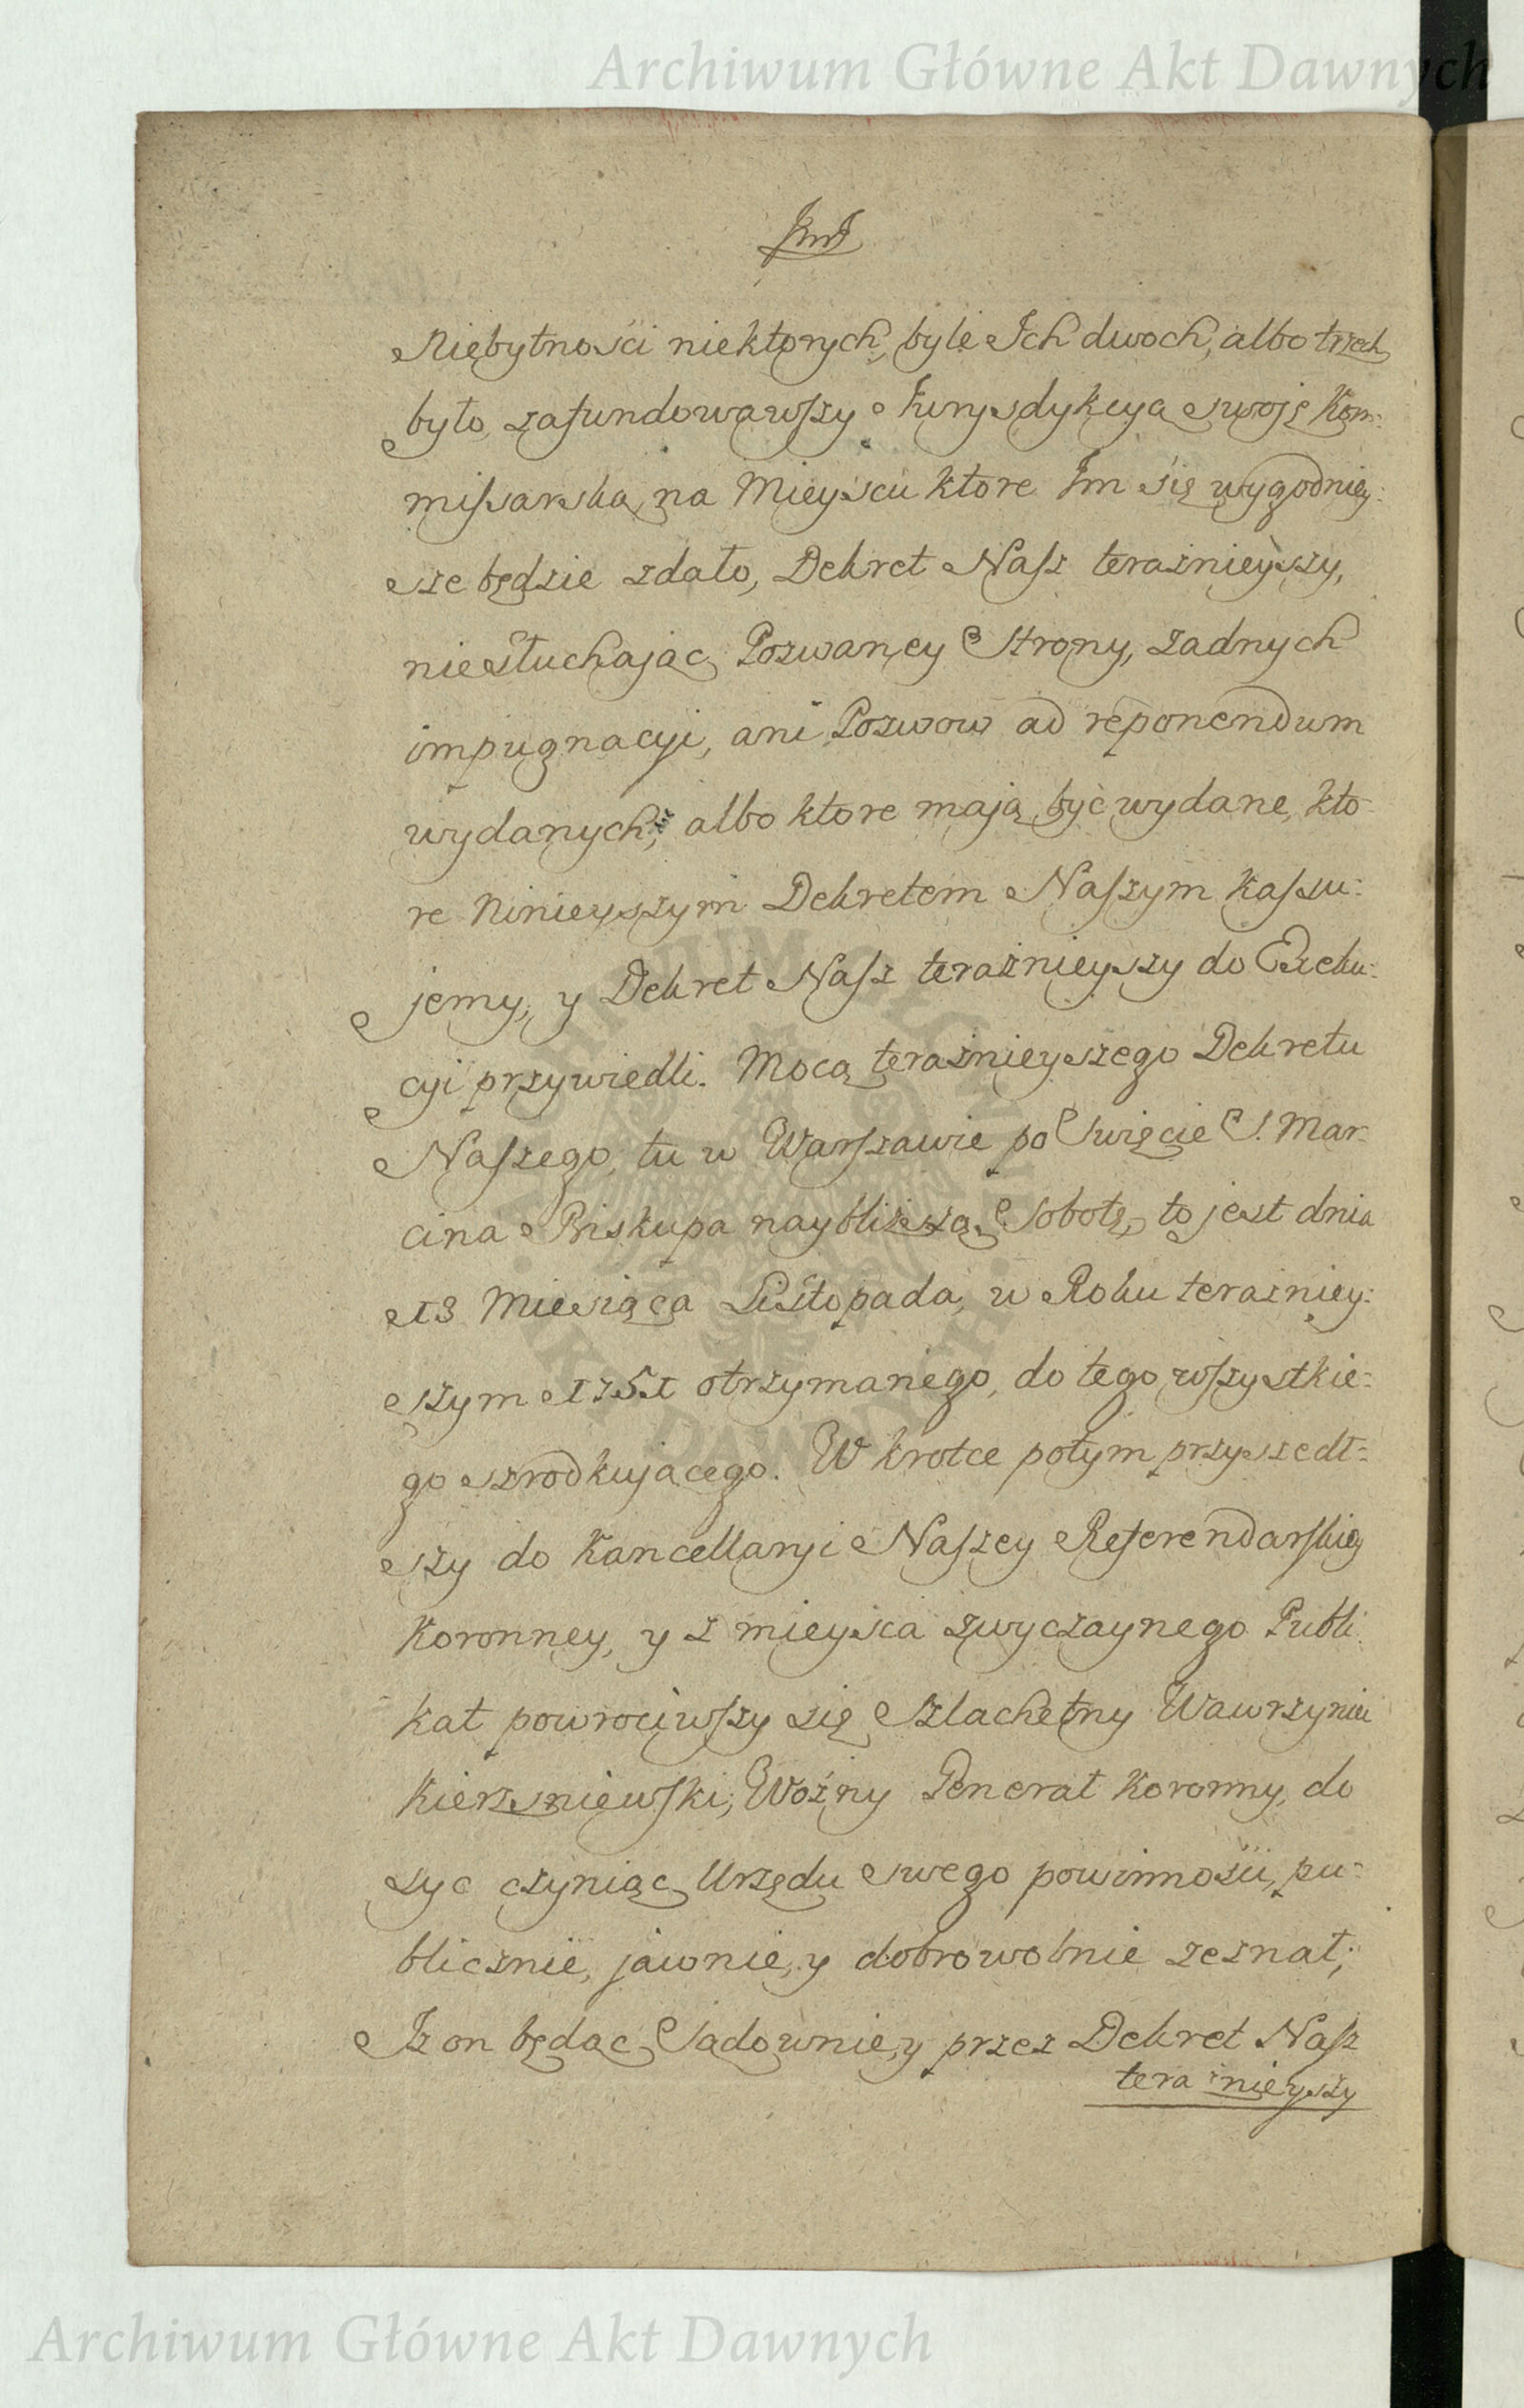 Archiwum Główne Akt Dawnych
Niebytnosci niektorych, byle Ich dwoch, albo trzech
było, zafundowawszy Jurysdykcyą swoję Kom:
missarską na Mieyscu ktore Im się wygodniey:
sze będzie zdało, Dekret Nasz teraznieyszy,
niesłuchaiąc Pozwaney Strony, zadnych
impugnacyi, ani Pozwow ad reponendum
wydanych, albo ktore maią być wydane, kto
re Ninieyszym Dekretem Naszym kassu:
jemy, y Dekret Nasz teraźnieyszy do Exeku:
cyi przywiedli. Mocą teraźnieyszego Dekretu
Naszego, tu w Warszawie po Swięcie S. Mar:
cina Biskupa naybliższą Sobotę, to jest dnia
13 Miesiąca Listopada, w Roku teraźniey:
szym 1751 otrzymanego, do tego wszystkie:
go szrodkującego. W krotce potym przyszedł:
szy do Kancellaryi Naszey Referendarskiey
Koronney, y z mieysca zwyczaynego Publi
kat powrociwszy się Szlachetny Wawrzyniec
Kierzsniewski, Woźny Generał Koronny, do
syc czyniąc Urzędu swego powinnosci, pu:
blicznie, jawnie, y dobrowolnie zeznał,
Iz on będąc Sądownie, y przez Dekret Nasz
teraźnieyszy
Archiwum Główne Akt Dawnych